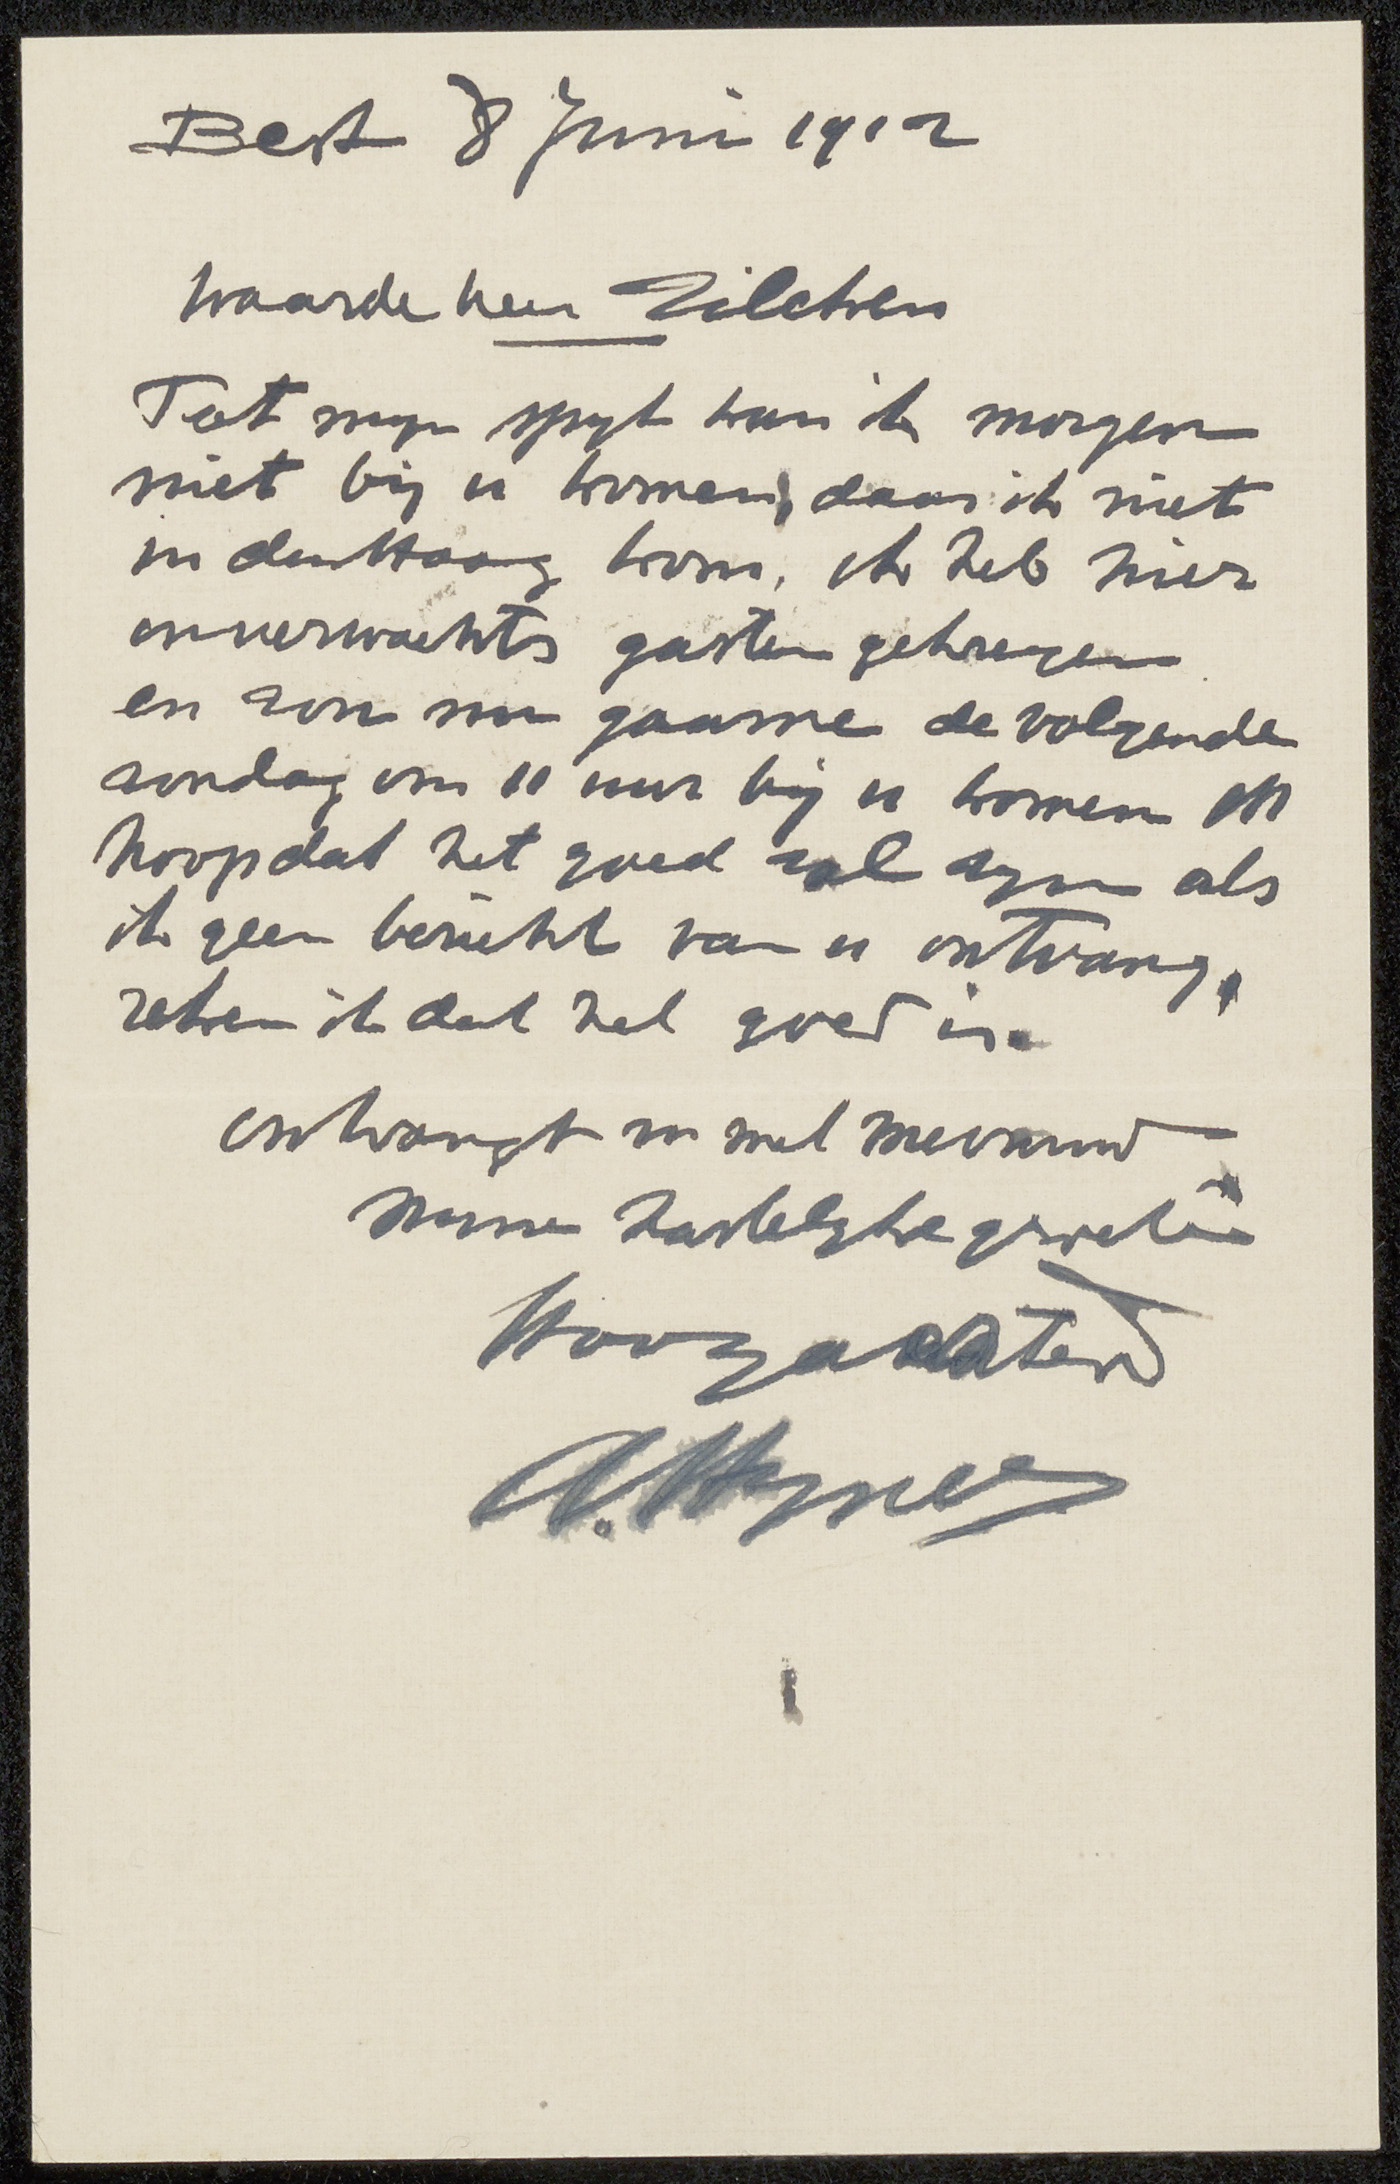 Best 8 Juni 1912
Waarde heer Zilcken
Tot myn spyt kan ik morgen
niet bij u komen, daar ik niet
in den Haag kom, ik heb hier
onverwachts gasten gekregen
en zou nu gaarne de volgende
zondag om 11 uur bij u komen ik
hoop dat het goed zal zyn als
ik geen bericht van u ontvang,
reken ik dat het goed is.
ontvangt u met mevrouw
myne hartelyke groeten
Hoogachtend
A. Hynee